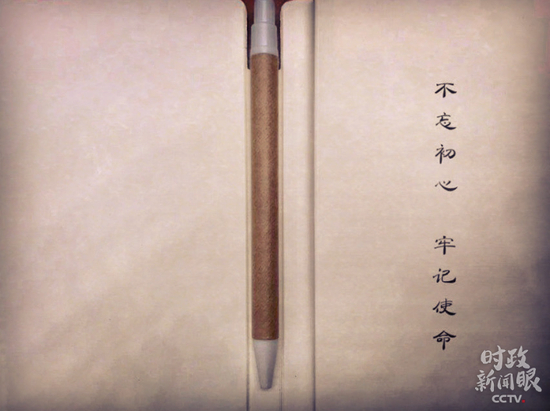 不忘初心 牢记使命
时政
新闻眼
CCTV